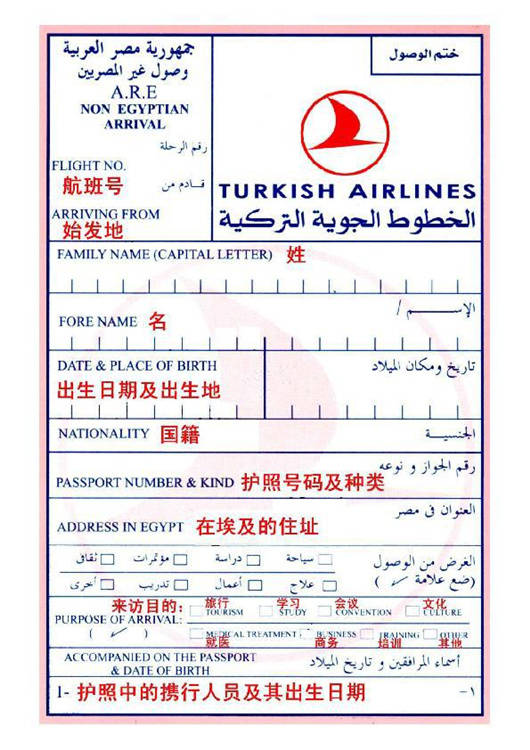 جمهورية مصر العربية
وصول غير المصريين
A.R.E
NON EGYPTIAN
ARRIVAL
ختم الوصول
رقم الرحلة
FLIGHT NO.
航班号
قادم من
ARRIVING FROM
始发地
TURKISH AIRLINES
الخطوط الجوية التركية
FAMILY NAME (CAPITAL LETTER) 姓
الإسم /
FORE NAME 名
DATE & PLACE OF BIRTH تاريخ ومكان الميلاد
出生日期及出生地
NATIONALITY 国籍 الجنسية
رقم الجواز و نوعه
PASSPORT NUMBER & KIND 护照号码及种类
العنوان فى مصر
ADDRESS IN EGYPT 在埃及的住址
الغرض من الوصول سياحة دراسة مؤتمرات ثقافى
(ضع علامة ✓) علاج أعمال تدريب أخرى
来访目的: 旅行 学习 会议 文化
TOURISM STUDY CONVENTION CULTURE
PURPOSE OF ARRIVAL:
( ✓ ) MEDICAL TREATMENT BUSINESS TRAINING OTHER
就医 商务 培训 其他
ACCOMPANIED ON THE PASSPORT أسماء المرافقين و تاريخ الميلاد
& DATE OF BIRTH
1- 护照中的携行人员及其出生日期 ١-